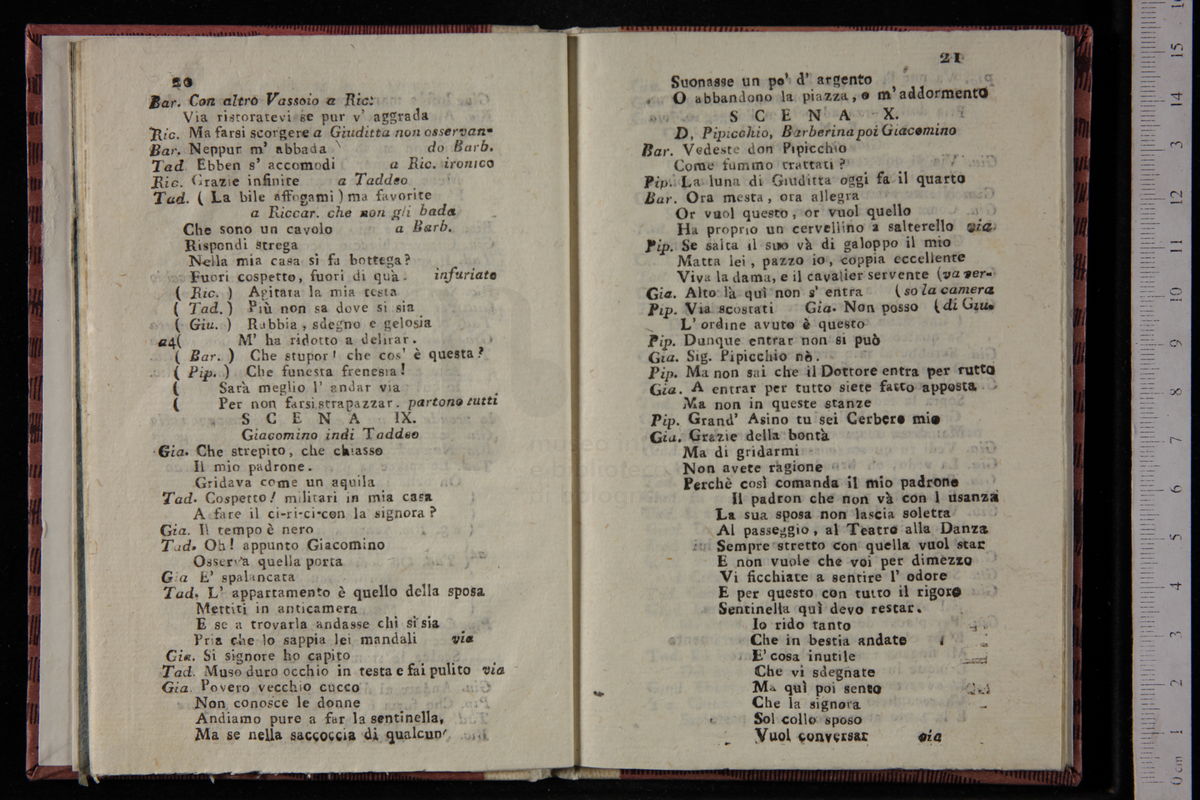 20
Bar. Con altro Vassoio a Ric:
Via ristoratevi se pur v' aggrada
Ric. Ma farsi scorgere a Giuditta non osservan-
Bar. Neppur m' abbada do Barb.
Tad. Ebben s' accomodi a Ric. ironico
Ric. Grazie infinite a Taddeo
Tad. ( La bile affogami ) ma favorite
a Riccar. che non gli bada
Che sono un cavolo a Barb.
Rispondi strega
Nella mia casa si fa bottega?
Fuori cospetto, fuori di quà. infuriato
( Ric. ) Agitata la mia testa
( Tad. ) Più non sa dove si sia
( Giu. ) Rabbia, sdegno e gelosia
a4( M' ha ridotto a delirar.
( Bar. ) Che stupor! che cos' è questa?
( Pip. ) Che funesta frenesia!
( Sarà meglio l' andar via
( Per non farsi strapazzar. partono tutti
SCENA IX.
Giacomino indi Taddeo
Gia. Che strepito, che chiasso
Il mio padrone.
Gridava come un aquila
Tad. Cospetto! militari in mia casa
A fare il ci-ri-ci-con la signora?
Gia. Il tempo è nero
Tad. Oh! appunto Giacomino
Osserva quella porta
Gia E' spalancata
Tad. L' appartamento è quello della sposa
Mettiti in anticamera
E se a trovarla andasse chi si sia
Pria che lo sappia lei mandali via
Gia. Si signore ho capito
Tad. Muso duro occhio in testa e fai pulito via
Gia. Povero vecchio cucco
Non conosce le donne
Andiamo pure a far la sentinella,
Ma se nella saccoccia di qualcun'
21
Suonasse un po' d' argento
O abbandono la piazza, o m' addormento
SCENA X.
D. Pipicchio, Barberina poi Giacomino
Bar. Vedeste don Pipicchio
Come fummo trattati?
Pip. La luna di Giuditta oggi fa il quarto
Bar. Ora mesta, ora allegra
Or vuol questo, or vuol quello
Ha proprio un cervellino a salterello via
Pip. Se salta il suo và di galoppo il mio
Matta lei, pazzo io, coppia eccellente
Viva la dama, e il cavalier servente (va ver-
Gia. Alto là quì non s' entra (so la camera
Pip. Via scostati Gia. Non posso (di Giu.
L' ordine avuto è questo
Pip. Dunque entrar non si può
Gia. Sig. Pipicchio nò.
Pip. Ma non sai che il Dottore entra per tutto
Gia. A entrar per tutto siete fatto apposta
Ma non in queste stanze
Pip. Grand' Asino tu sei Cerbero mio
Gia. Grazie della bontà
Ma di gridarmi
Non avete ragione
Perchè così comanda il mio padrone
Il padron che non và con l usanza
La sua sposa non lascia soletta
Al passeggio, al Teatro alla Danza
Sempre stretto con quella vuol star
E non vuole che voi per dimezzo
Vi ficchiate a sentire l' odore
E per questo con tutto il rigore
Sentinella quì devo restar.
Io rido tanto
Che in bestia andate
E' cosa inutile
Che vi sdegnate
Ma quì poi sento
Che la signora
Sol collo sposo
Vuol conversar via